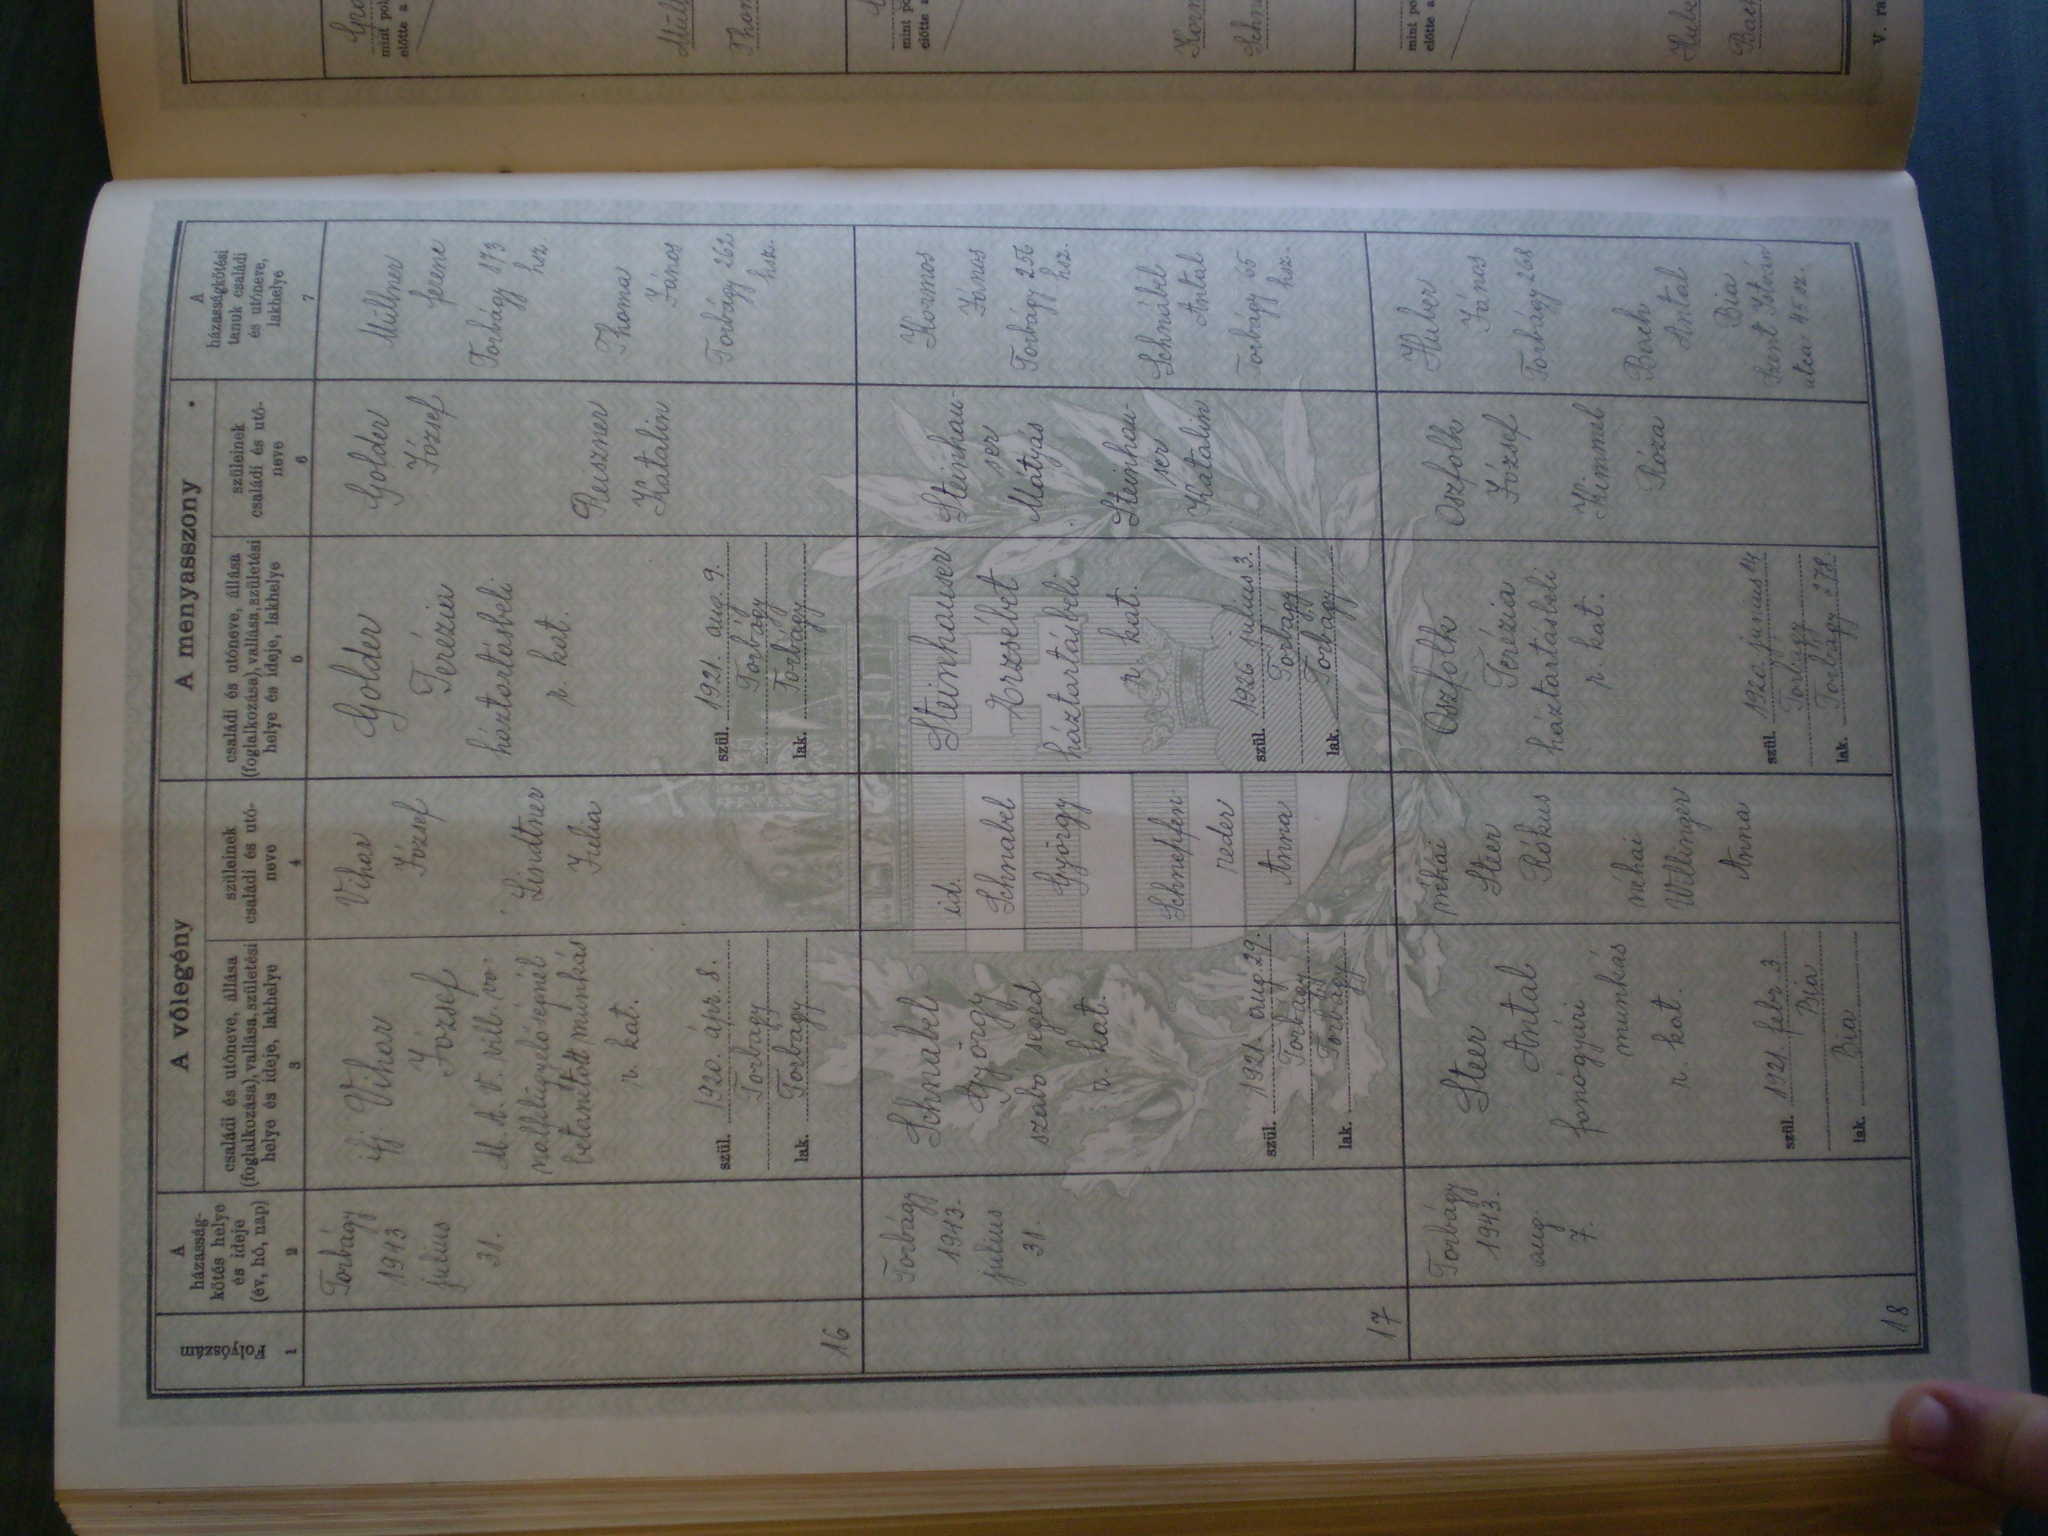 Folyószám
1
A
házasság-
kötés helye
és ideje
(év, hó, nap)
2
A vőlegény
családi és utóneve, állása
(foglalkozása), vallása, születési
helye és ideje, lakhelye
3
szüleinek
családi és utó-
neve
4
A menyasszony
családi és utóneve, állása
(foglalkozása), vallása, születési
helye és ideje, lakhelye
5
szüleinek
családi és utó-
neve
6
A
házasságkötési
tanuk családi
és utóneve,
lakhelye
7
16
Torbágy
1943
július
31.
ifj. Vihar
József
M. Á. V. vill. vo-
nalfelügyelőségénél
betanított munkás
r. kat.
szül. 1920. ápr. 8.
Torbágy
lak. Torbágy
Vihar
József
Lindtner
Julia
Golder
Terézia
háztartásbeli
r. kat.
szül. 1921. aug. 9.
Torbágy
lak. Torbágy
Golder
József
Reiszner
Katalin
Müllner
Ferenc
Torbágy 173
hsz.
Thoma
János
Torbágy 262
hsz.
17
Torbágy
1943.
július
31.
Schnabel
György
szabó segéd
r. kat.
szül. 1921. aug. 29.
Torbágy
lak. Torbágy
id.
Schnabel
György
Schneffen-
reder
Anna
Steinhauser
Erzsébet
háztartásbeli
r. kat.
szül. 1926 július 3.
Torbágy
lak. Torbágy
Steinhau-
ser
Mátyás
Steinhau-
ser
Katalin
Kormos
János
Torbágy 256
hsz.
Schnábel
Antal
Torbágy 65
hsz.
18
Torbágy
1943.
aug.
7.
Steer
Antal
fonógyári
munkás
r. kat.
szül. 1921. febr. 3.
Bia
lak. Bia
néhai
Steer
Rókus
néhai
Willinger
Anna
Oszfolk
Terézia
háztartásbeli
r. kat.
szül. 1920. junius 14
Torbágy
lak. Torbágy 278.
Oszfolk
József
Kimmel
Róza
Huber
János
Torbágy 268
Bach
Antal
Bia
Szent István
utca 45 sz.
mint po
előtte a
Müll
Thom
mint po
előtte a
Korm
Schn
mint po
előtte a
Hube
Bach
V. ra